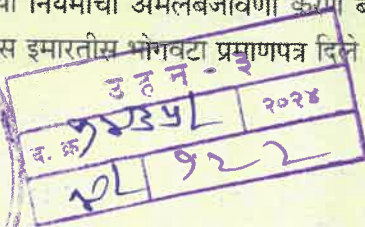 नियमांची अमलबजावणी करणे
स इमारतीस भोगवटा प्रमाणपत्र दिले
उ ह न - ३
द. क्र. २०२४
१२२